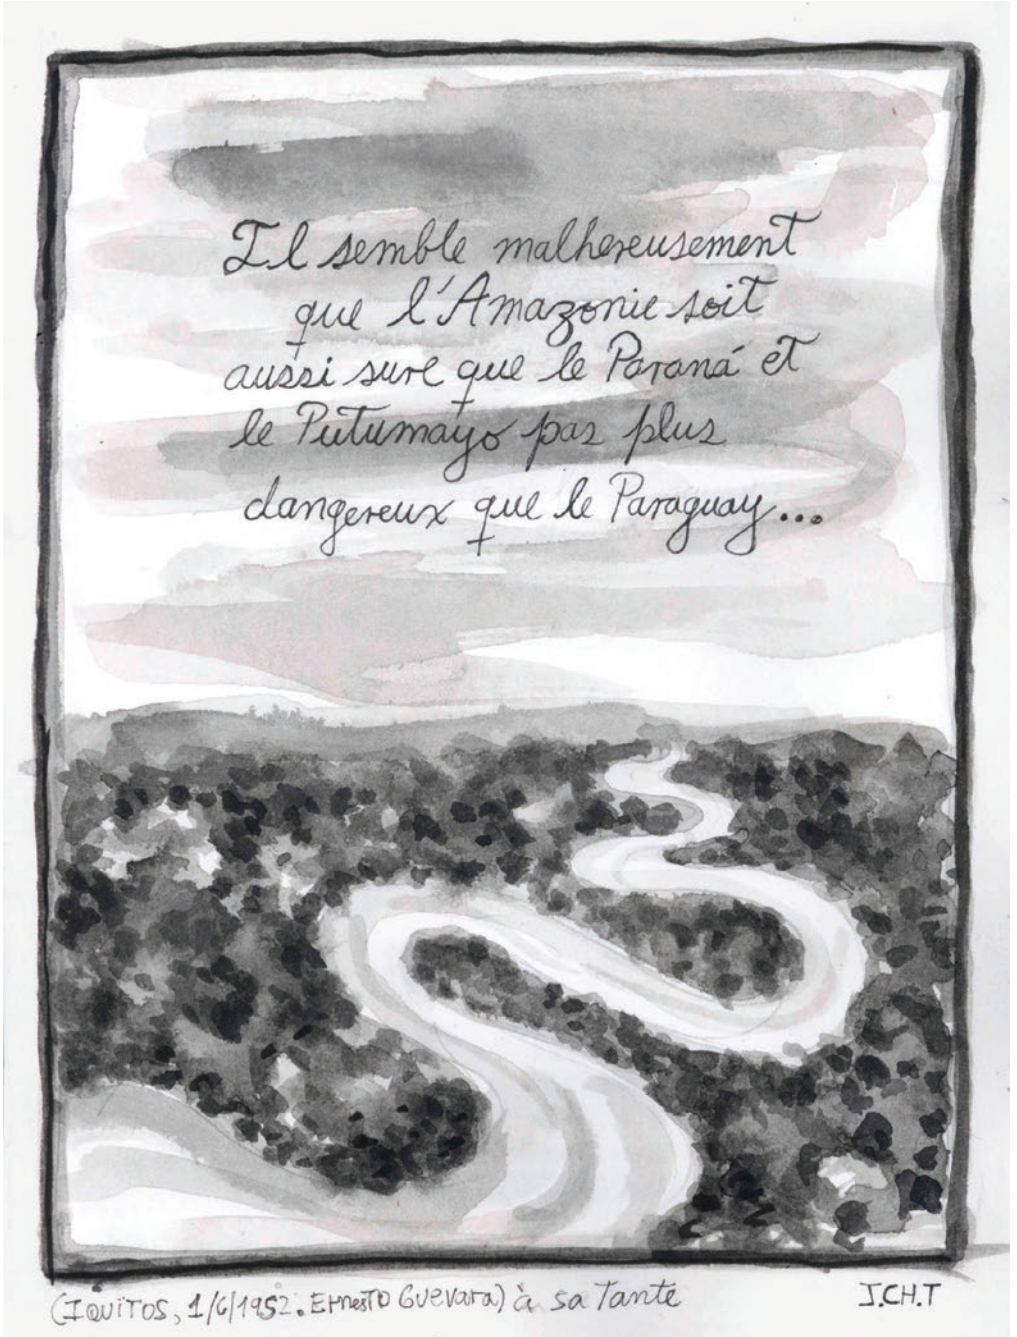 Il semble malhereusement
que l'Amazonie soit
aussi sure que le Paraná et
le Putumayo pas plus
dangereux que le Paraguay...
(IQUITOS, 1/6/1952. Ernesto Guevara) à sa Tante
J.CH.T